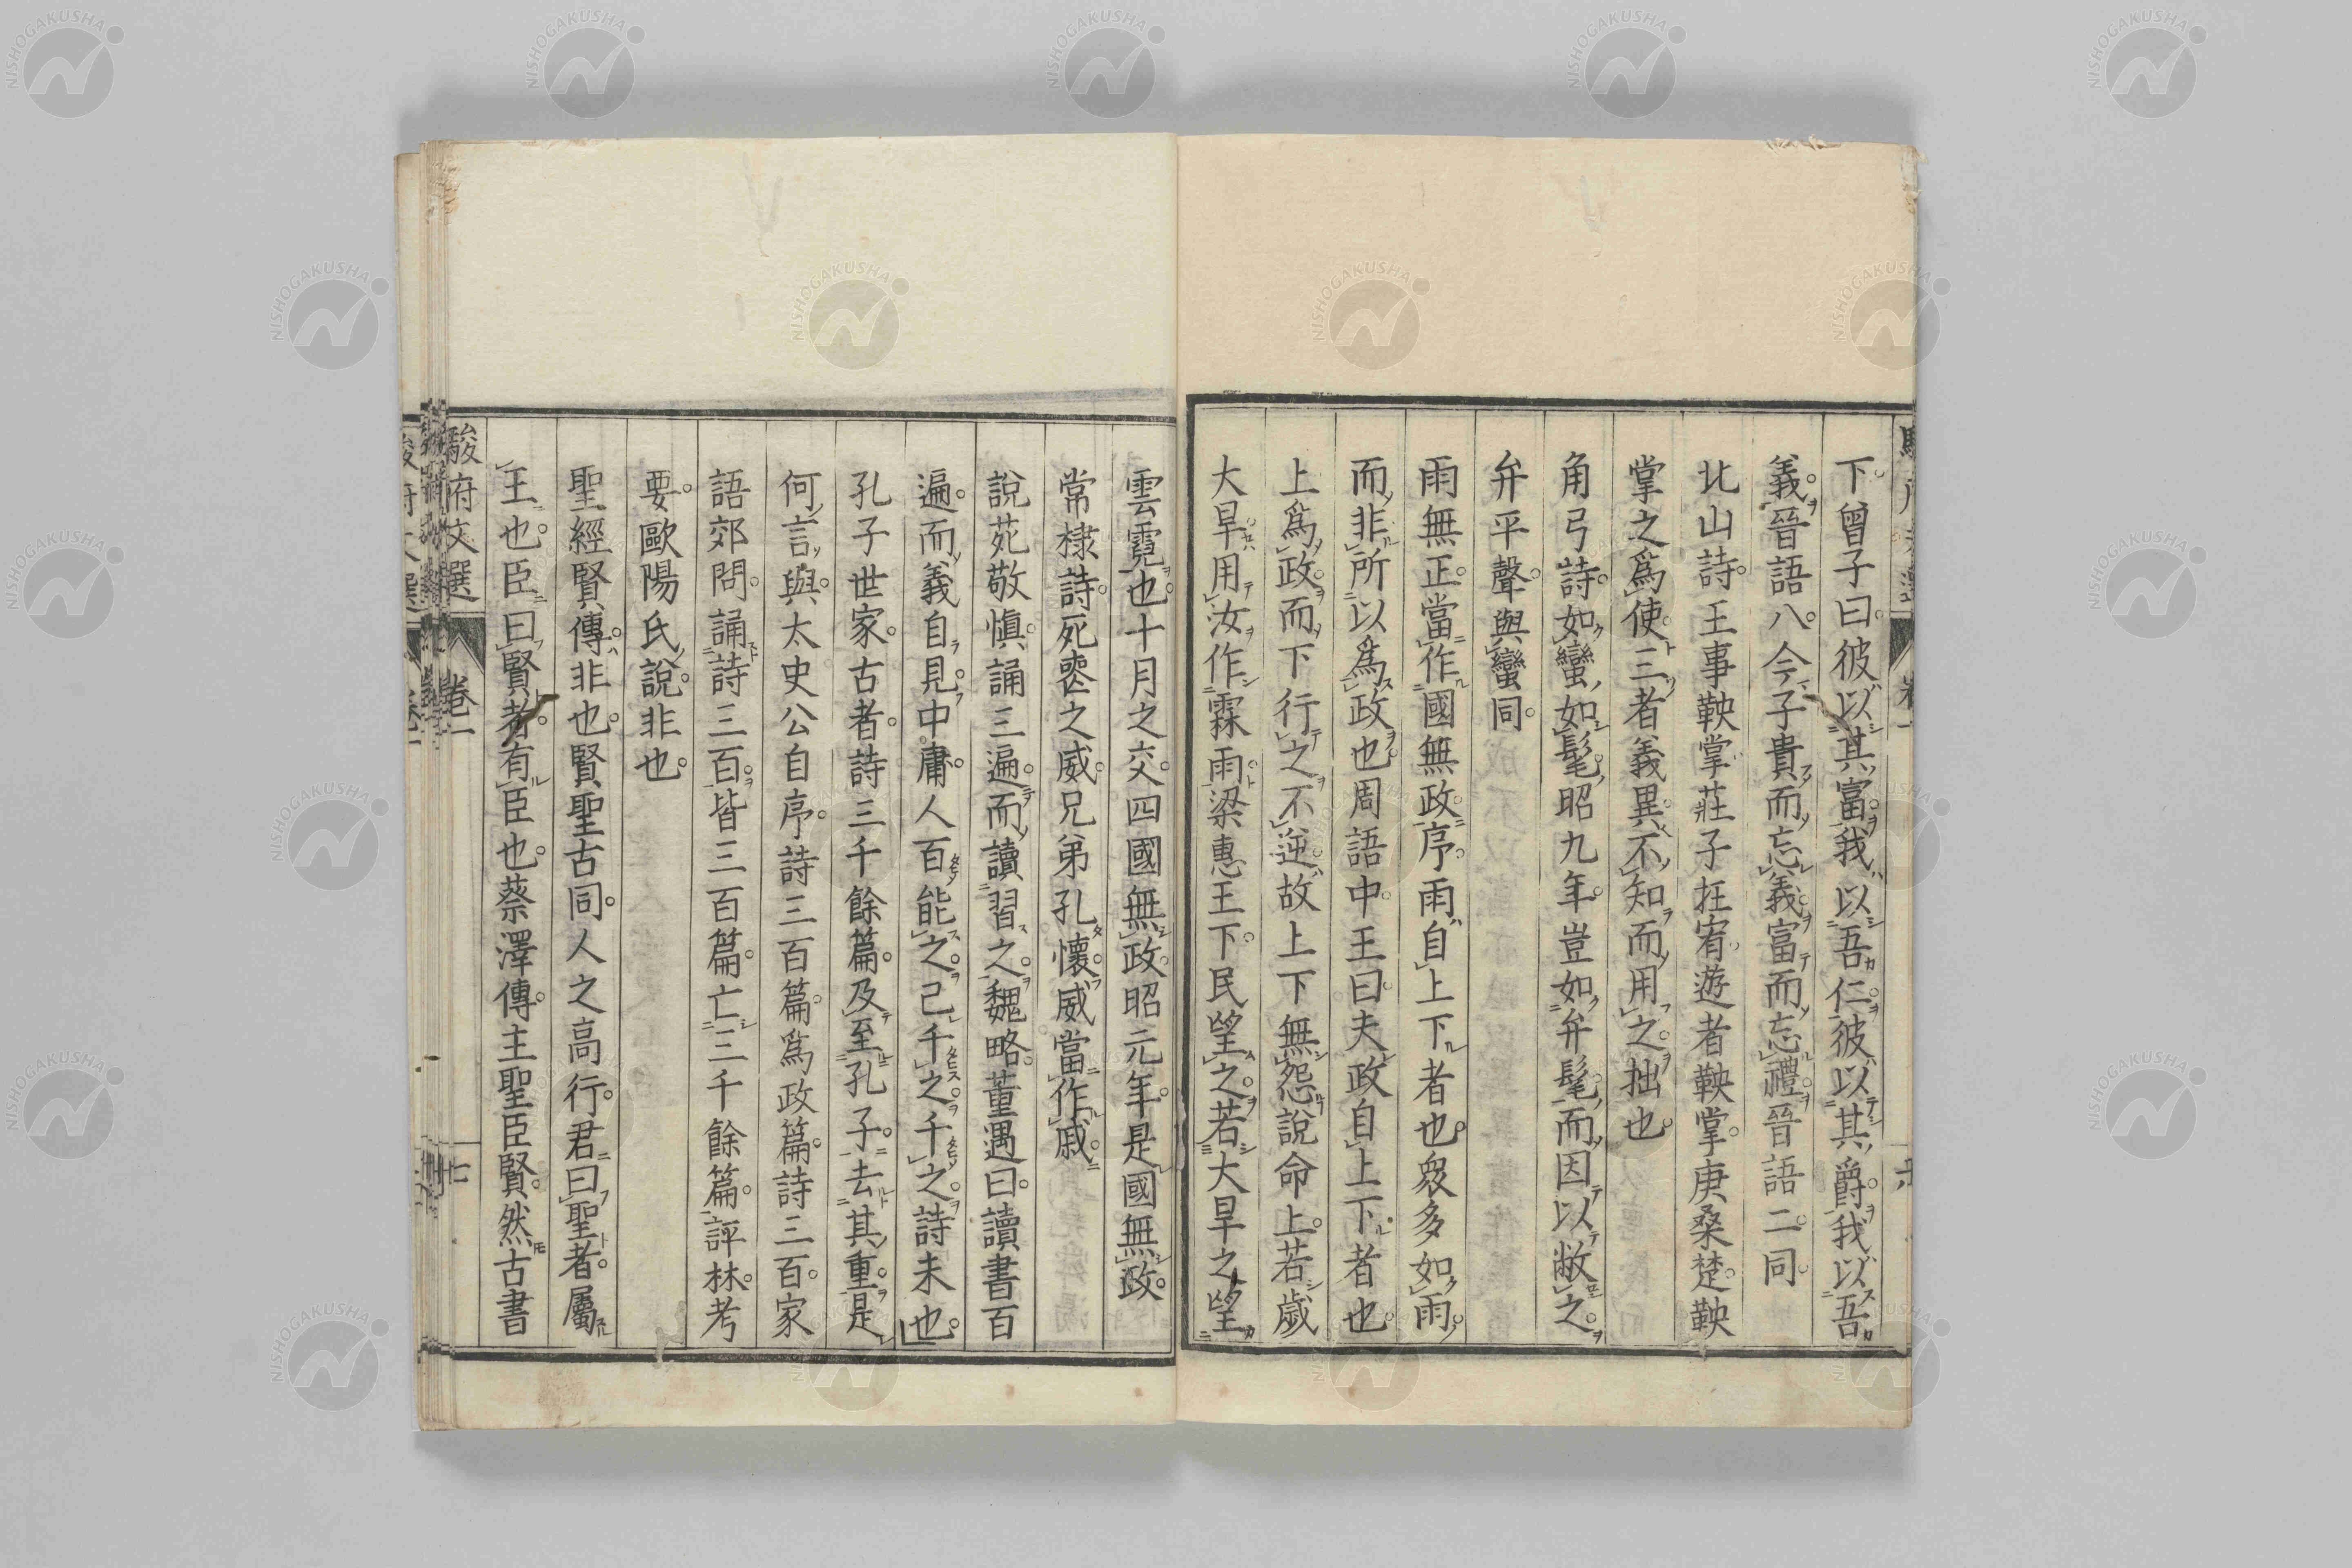 下曾子曰彼以其富我以吾仁彼以其爵我以吾
義晉語八今子貴而忘義富而忘禮晉語二同
北山詩王事鞅掌莊子在宥遊者鞅掌庚桑楚鞅
掌之爲使三者義異不知而用之拙也
角弓詩如蠻如髦昭九年豈如弁髦而因以敝之
弁平聲與蠻同
雨無正當作國無政序雨自上下者也衆多如雨
而非所以爲政也周語中王曰夫政自上下者也
上爲政而下行之不逆故上下無怨說命上若歲
大旱用汝作霖雨梁惠王下民望之若大旱之望
雲霓也十月之交四國無政昭元年是國無政
常棣詩死喪之威兄弟孔懷威當作戚
說苑敬愼誦三遍而讀習之魏略董遇曰讀書百
遍而義自見中庸人百能之己千之千之詩未也
孔子世家古者詩三千餘篇及至孔子去其重是
何言與太史公自序詩三百篇爲政篇詩三百家
語郊問誦詩三百皆三百篇亡三千餘篇評林考
要歐陽氏說非也
聖經賢傳非也賢聖古同人之高行君曰聖者屬
王也臣曰賢者有臣也蔡澤傳主聖臣賢然古書
駿府文選
卷一
七
NISHOGAKUSHA